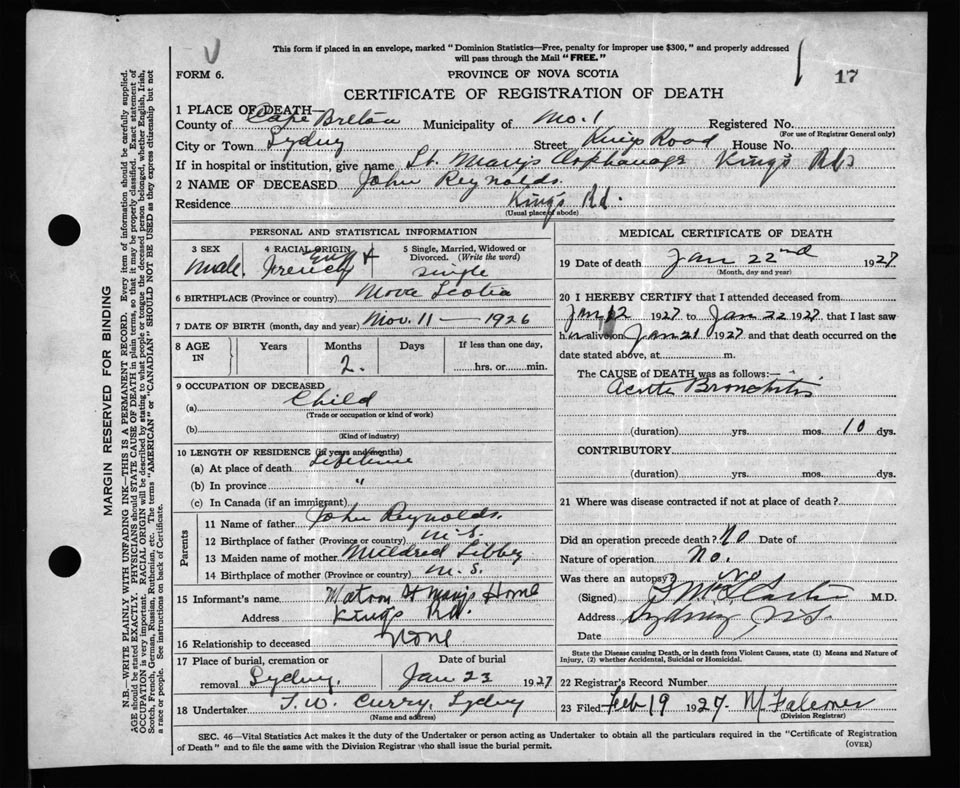 This form if placed in an envelope, marked "Dominion Statistics—Free, penalty for improper use $300," and properly addressed
will pass through the Mail "FREE."
FORM 6.
PROVINCE OF NOVA SCOTIA
17
CERTIFICATE OF REGISTRATION OF DEATH
1 PLACE OF DEATH—
County of Cape Breton Municipality of No. 1 Registered No.
(For use of Registrar General only)
City or Town Sydney Street Kings Road House No.
If in hospital or institution, give name St. Mary's Orphanage King's Rd
2 NAME OF DECEASED John Reynolds.
Residence King's Rd.
(Usual place of abode)
PERSONAL AND STATISTICAL INFORMATION
3 SEX 4 RACIAL ORIGIN 5 Single, Married, Widowed or
Divorced. (Write the word)
Male. French Eng + single
6 BIRTHPLACE (Province or country) Nova Scotia
7 DATE OF BIRTH (month, day and year) Nov. 11 — 1926
8 AGE IN Years Months Days If less than one day,
2. hrs. or min.
9 OCCUPATION OF DECEASED
(a) Child
(Trade or occupation or kind of work)
(b)
(Kind of industry)
10 LENGTH OF RESIDENCE (in years and months)
(a) At place of death Lifetime
(b) In province "
(c) In Canada (if an immigrant)
Parents
11 Name of father John Reynolds.
12 Birthplace of father (Province or country) N.S.
13 Maiden name of mother Mildred Libbey
14 Birthplace of mother (Province or country) N.S.
15 Informant's name Matron St Mary's Home
Address Kings Rd.
16 Relationship to deceased None
17 Place of burial, cremation or Date of burial
removal Sydney. Jan 23 1927
18 Undertaker T. W. Curry, Sydney
(Name and address)
MEDICAL CERTIFICATE OF DEATH
19 Date of death Jan 22nd 1927
(Month, day and year)
20 I HEREBY CERTIFY that I attended deceased from
Jan 12 1927 to Jan 22 1927 that I last saw
h im alive on Jan 21 1927 and that death occurred on the
date stated above, at m.
The CAUSE of DEATH was as follows:—
Acute Bronchitis
(duration) yrs. mos. 10 dys.
CONTRIBUTORY
(duration) yrs. mos. dys.
21 Where was disease contracted if not at place of death?
Did an operation precede death? No Date of
Nature of operation No.
Was there an autopsy? no
(Signed) M.D.
Address Sydney N.S.
Date
State the Disease causing Death, or in death from Violent Causes, state (1) Means and Nature of
Injury, (2) whether Accidental, Suicidal or Homicidal.
22 Registrar's Record Number
23 Filed Feb 19 1927. M Falconer
(Division Registrar)
SEC. 46—Vital Statistics Act makes it the duty of the Undertaker or person acting as Undertaker to obtain all the particulars required in the "Certificate of Registration
of Death" and to file the same with the Division Registrar who shall issue the burial permit.
(OVER)
MARGIN RESERVED FOR BINDING
N.B.—WRITE PLAINLY WITH UNFADING INK—THIS IS A PERMANENT RECORD. Every item of information should be carefully supplied.
AGE should be stated EXACTLY. PHYSICIANS should STATE CAUSE OF DEATH in plain terms, so that it may be properly classified. Exact statement of
OCCUPATION is very important. RACIAL ORIGIN will be described by stating to what people or tongue the deceased person belonged, whether English, Irish,
Scotch, French, German, Russian, Ruthenian, etc. The terms "AMERICAN" or "CANADIAN" SHOULD NOT BE USED as they express citizenship but not
a race or people. See instructions on back of Certificate.